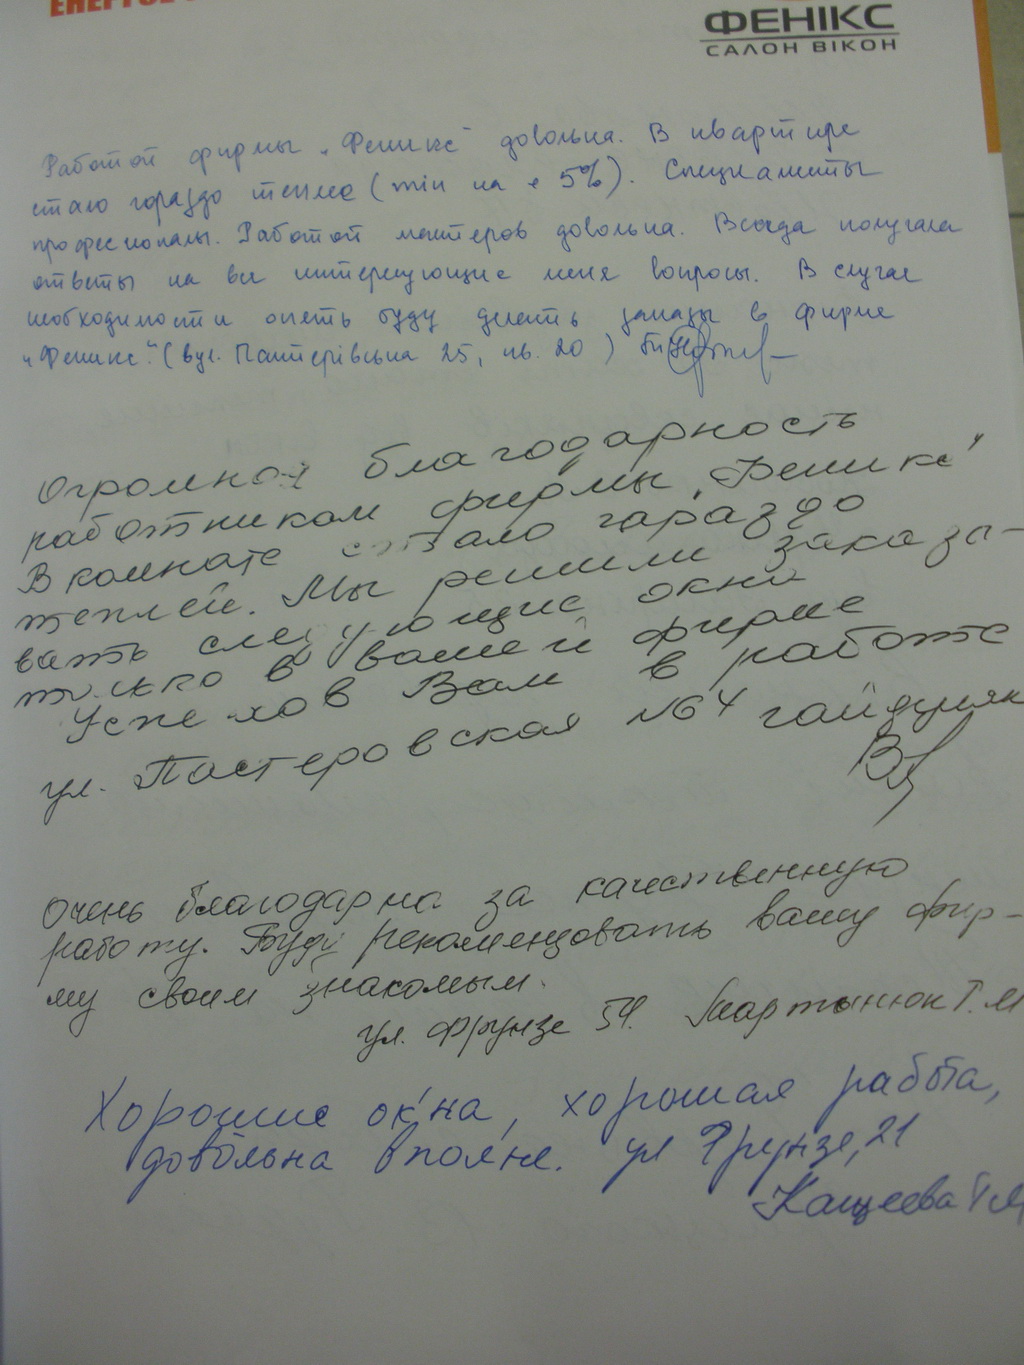 ФЕНІКС
САЛОН ВІКОН
Работой фирмы „Феникс" довольна. В квартире
стало гораздо теплее (min на 5%). Специалисты
профессионалы. Работой мастеров довольна. Всегда получала
ответы на все интересующие меня вопросы. В случае
необходимости опять буду делать заказы в фирме
„Феникс". (вул. Пастерівська 25, кв. 20)
Огромная благодарность
работникам фирмы „Феникс"
В комнате стало гараздо
теплей. Мы решили заказы-
вать следующие окна
только в вашей фирме
Успехов Вам в работе
ул. Пастеровская №64 Гайдуляк
Очень благодарна за качественную
работу. Буду рекомендовать вашу фир-
му своим знакомым.
ул. Фрунзе 54. Мартынюк Т.М
Хорошие окна, хорошая работа,
довольна вполне. ул Фрунзе, 21
Кащеева